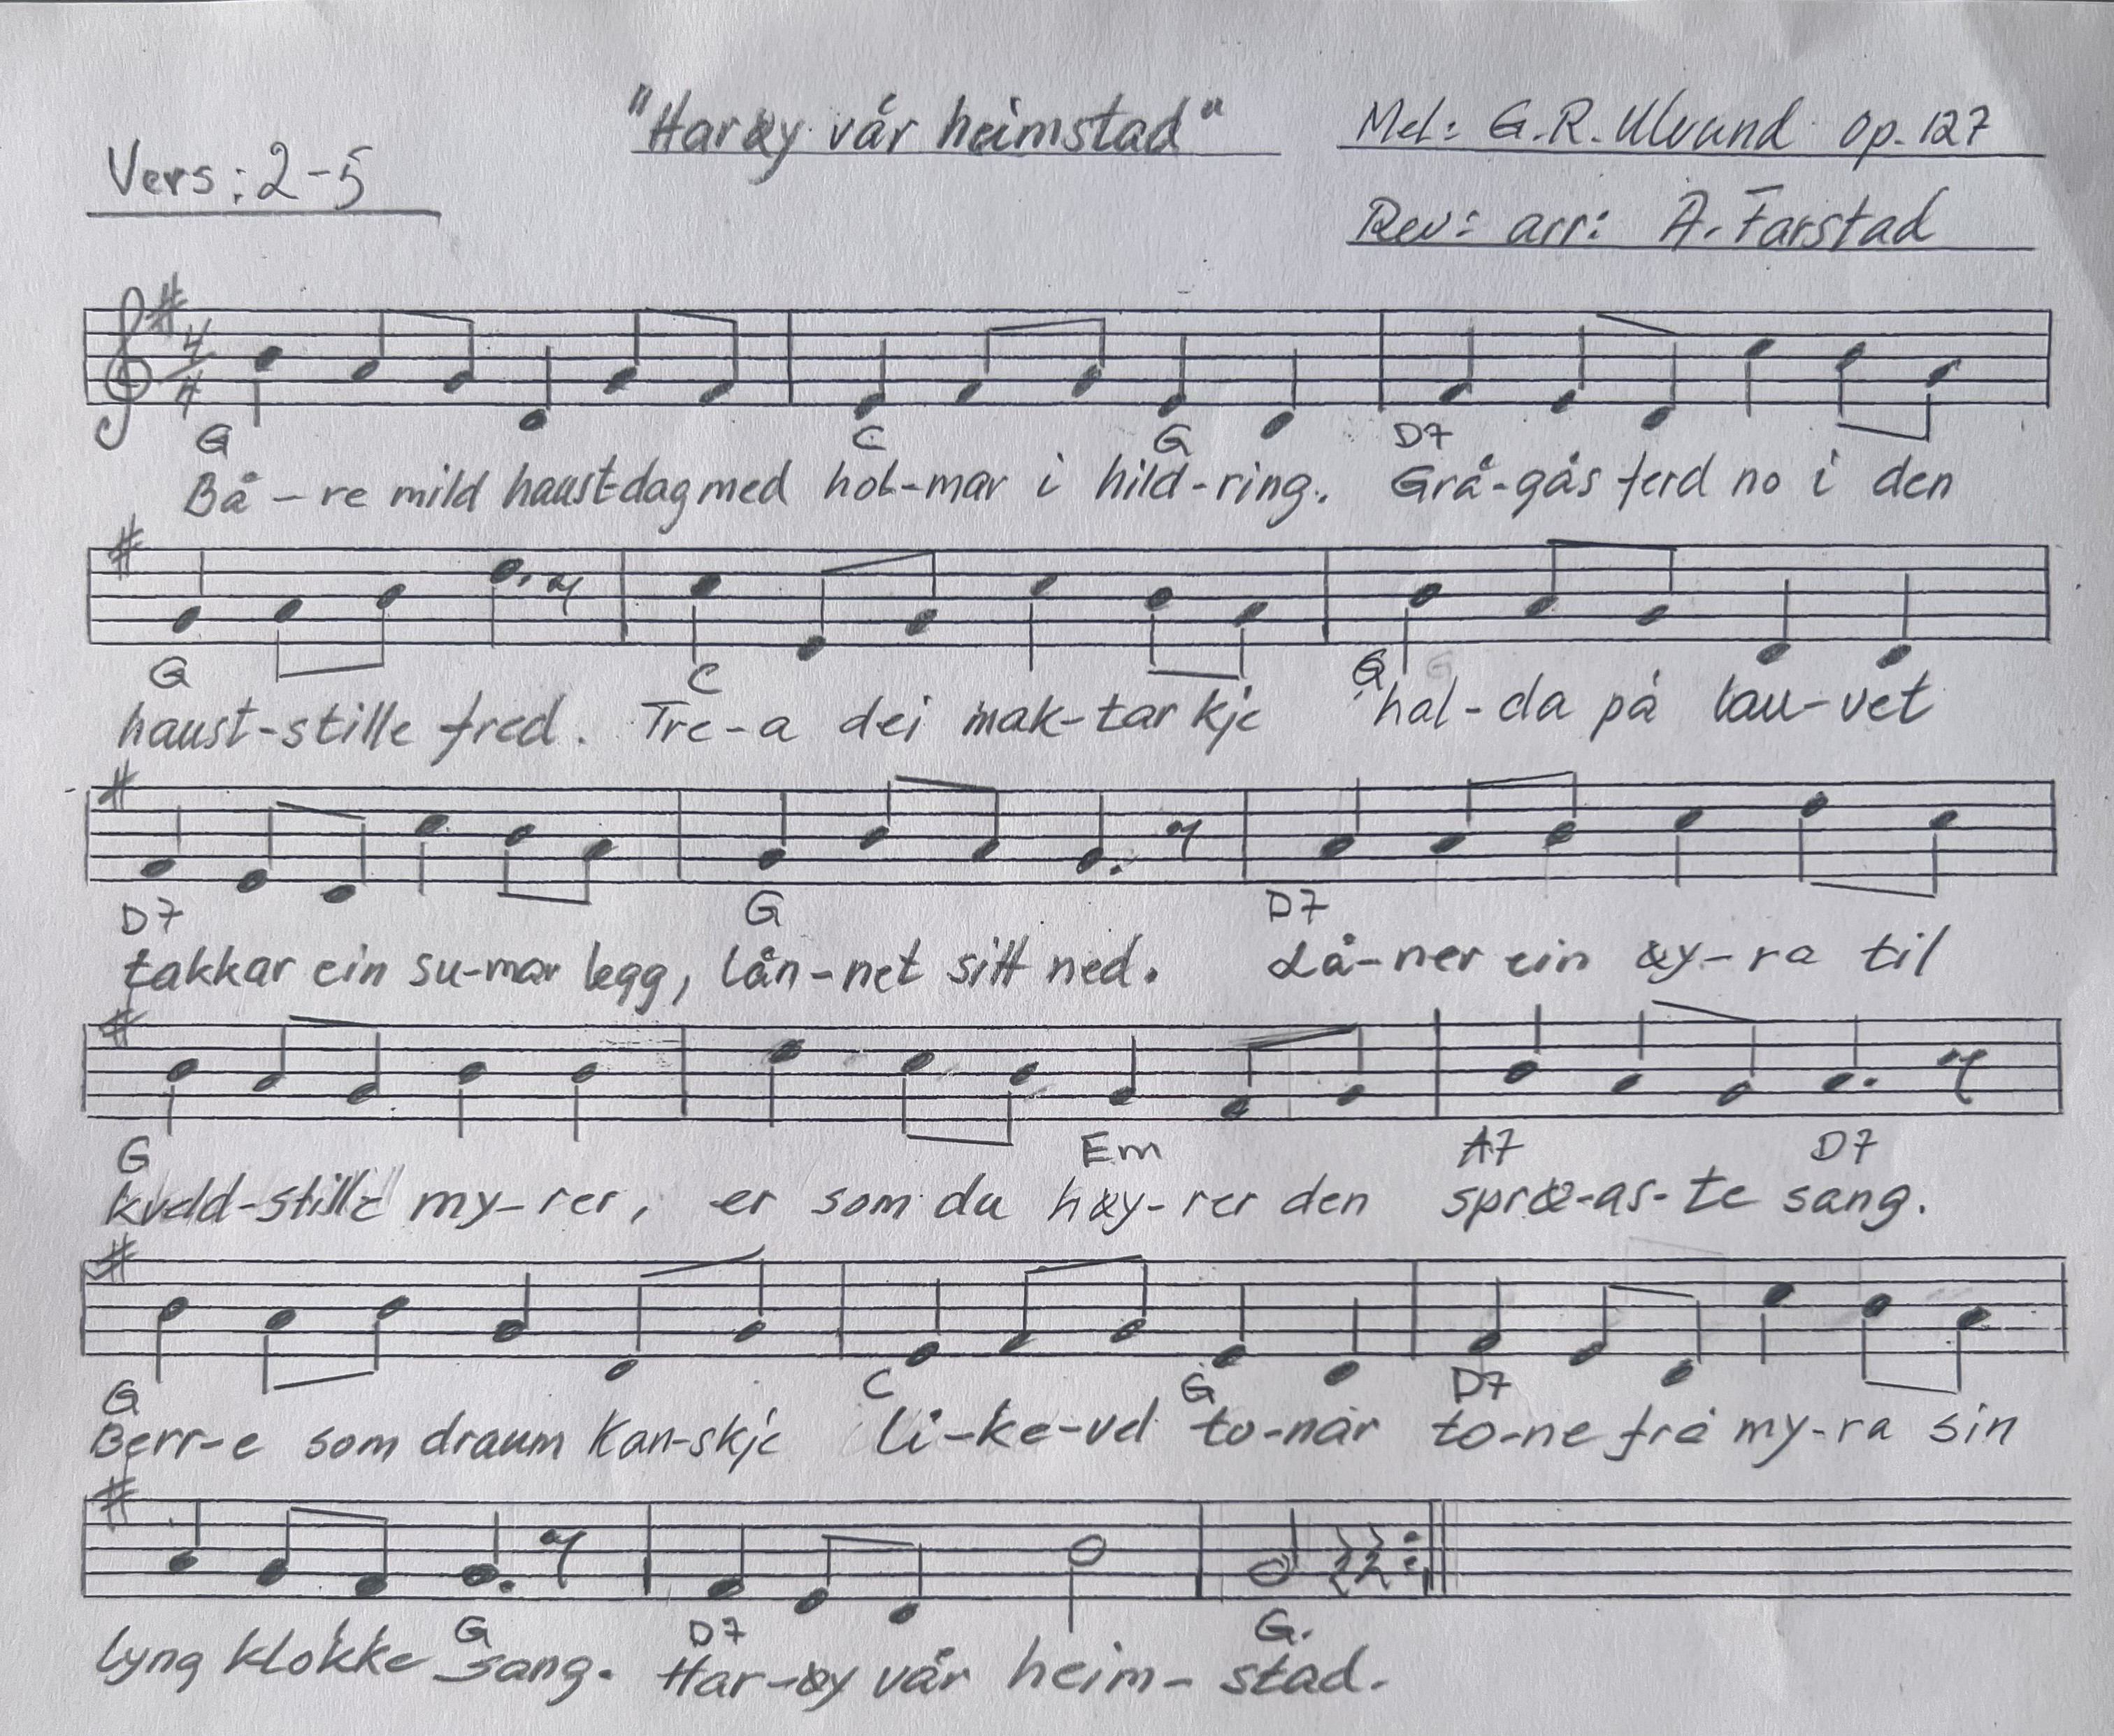 "Harøy vår heimstad"
Mel: G.R. Ulvund Op. 127
Vers: 2-5
Rev: arr: A. Farstad
4/4
G C G D7
Bå-re mild haust-dag med hol-mar i hild-ring. Grå-gås ferd no i den
G C G G
haust-stille fred. Tre-a dei mak-tar kje hal-da på lau-vet
D7 G D7
takkar ein su-mar legg, lån-net sitt ned. Lå-ner ein øy-ra til
G Em A7 D7
kveld-stille my-rer, er som du høy-rer den sprø-as-te sang.
G C G D7
Berr-e som draum kan-skje li-ke-vel to-nar to-ne frå my-ra sin
G D7 G.
lyng klokke sang. Har-øy vår heim-stad.